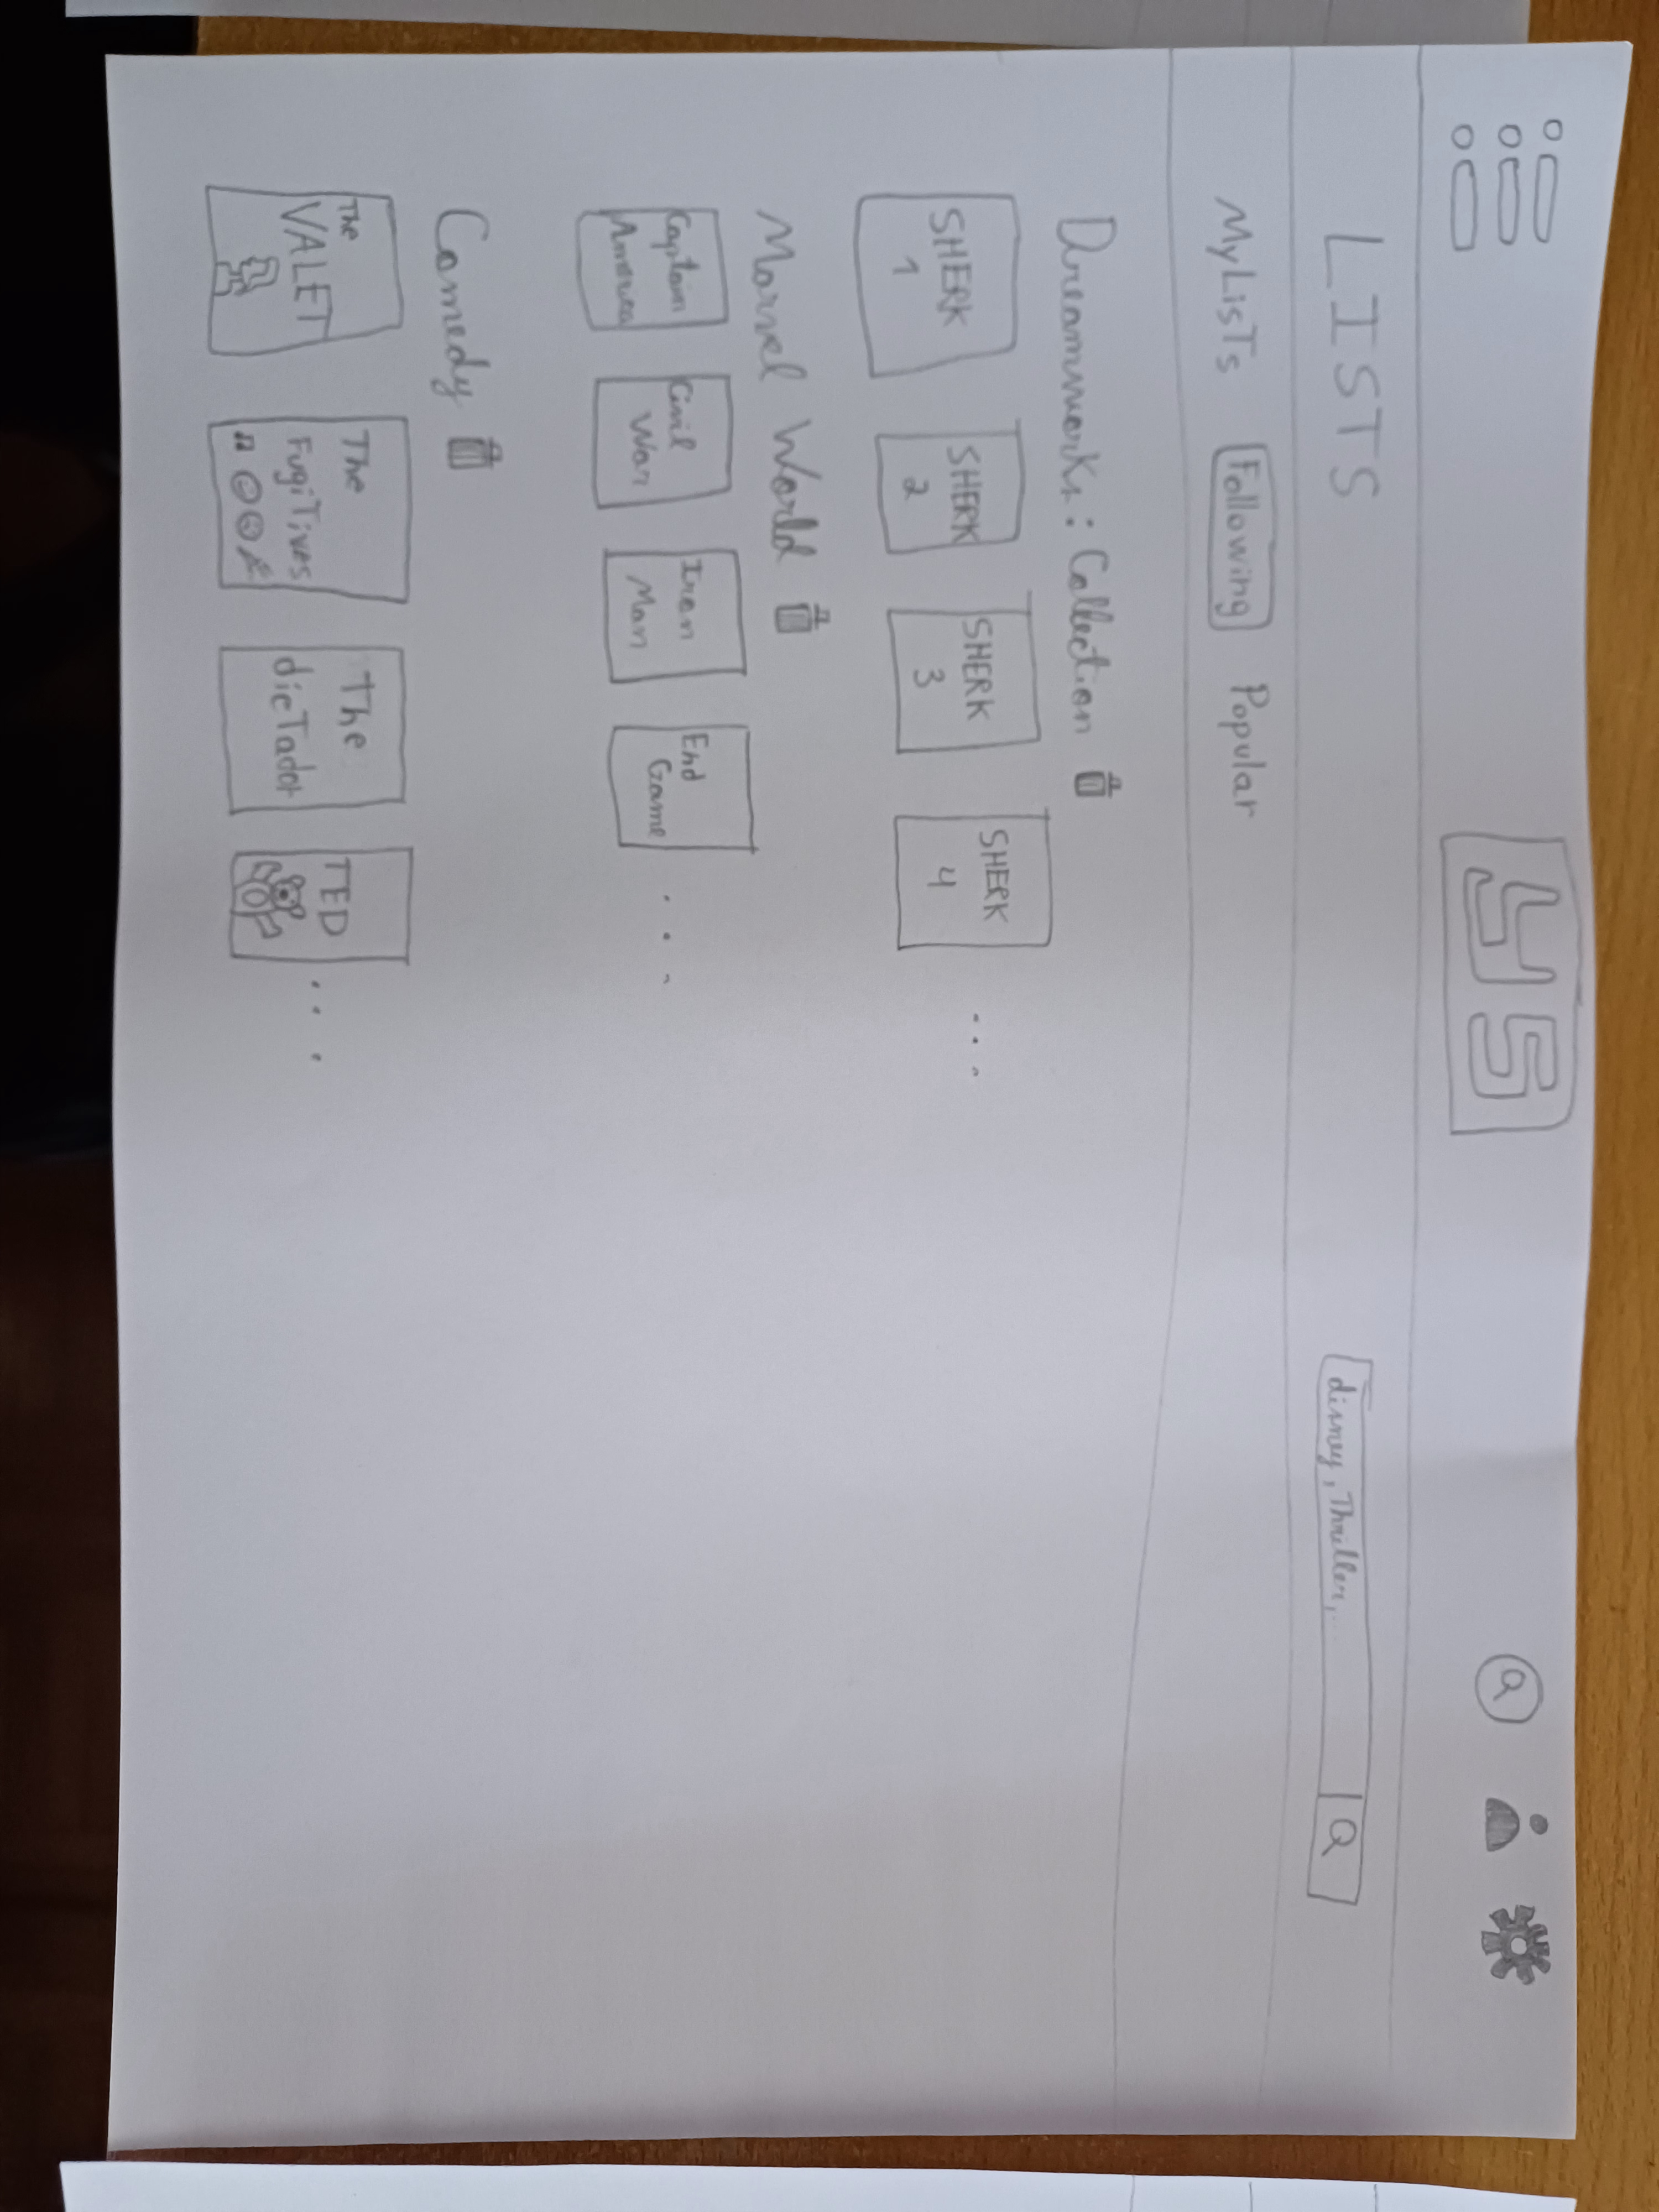 JS
LISTS
disney, Thriller,...
MyLisTs Following Popular
Dreamworks: Collection
SHERK 1
SHERK 2
SHERK 3
SHERK 4
...
Marvel World
Captain America
Civil War
Iron Man
End Game
...
Comedy
The VALET
The FugiTives
The dicTador
TED
...